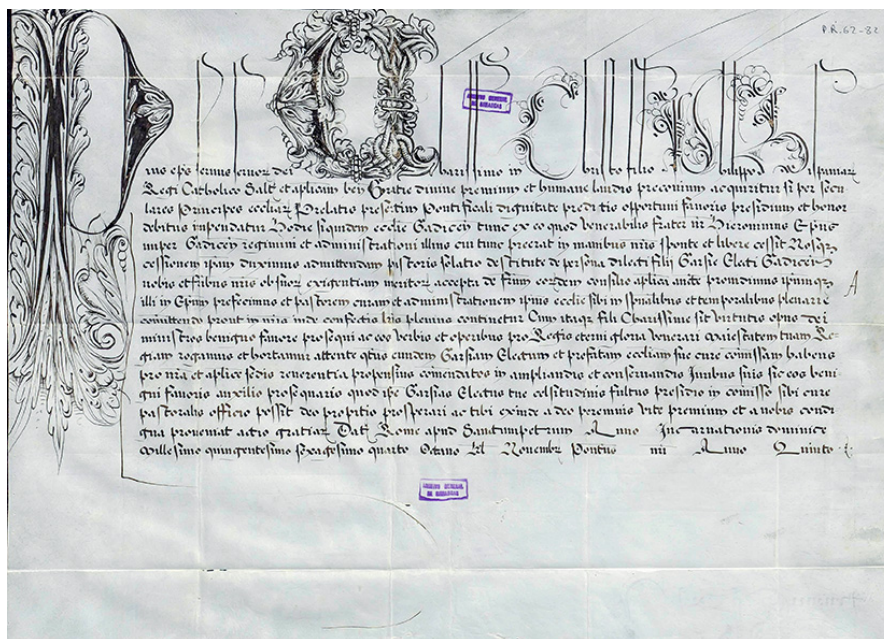 P.R. 62-82
Pius eps servus servor dei Carissimo in Christo filio Philippo Hispaniar
ARCHIVO GENERAL
DE SIMANCAS
Regi Catholico Salt et aplicam ben Gratie divine premium et humane laudis preconium acquiritur si per secu
lares Principes eccliar Prelatis presertim Pontificali dignitate preditis opportuni favoris presidium et honor
debitus impendatur Hodie siquidem ecclie Gadicen tunc ex eo quod venerabilis frater nr Hieronimus Epus
nuper Gadicen regimini et administrationi illius cui tunc preerat in manibus nris sponte et libere cessit Nosq
cessionem ipam duximus admittendam pastoris solatio destitute de persona dilecti filii Garsie Electi Gadicen
nobis et fribus nris ob suor exigentiam meritor accepta de frum eordem consilio aplica aucte providimus ipsumq
illi in Epum prefecimus et pastorem curam et administrationem ipius ecclie sibi in spualibus et temporalibus plenarie
A
comittendo prout in nris inde confectis lris plenius continetur Cum itaq fili Charissime sit virtutis opus dei
ministros benigno favore prosequi ac eos verbis et operibus pro Regis eterni gloria venerari Maiestatem tuam Re-
giam rogamus et hortamur attente qtus eundem Garsiam Electum et prefatam eccliam sue cure comissam habens
pro nra et aplice sedis reverentia propensius comendatos in ampliandis et conservandis Juribus suis sic eos beni
gni favoris auxilio prosequaris quod ipe Garsias Electus tue celsitudinis fultus presidio in comisso sibi cure
pastoralis officio possit deo propitio prosperari ac tibi exinde a deo perennis vite premium et a nobis condi
gna proveniat actio gratiar Dat Rome apud Sanctumpetrum Anno Incarnationis dominice
Millesimo quingentesimo sexagesimo quarto Octavo kl Novembr Pontus nri Anno Quinto
ARCHIVO GENERAL
DE SIMANCAS